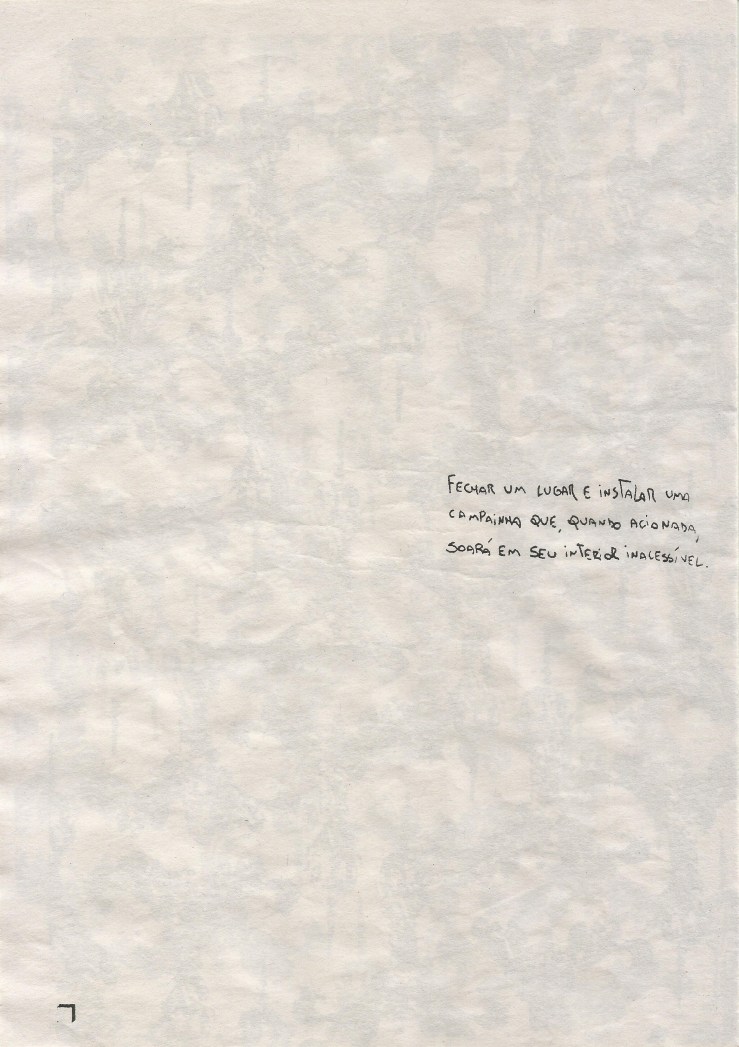 FECHAR UM LUGAR E INSTALAR UMA
CAMPAINHA QUE, QUANDO ACIONADA,
SOARÁ EM SEU INTERIOR INACESSÍVEL.